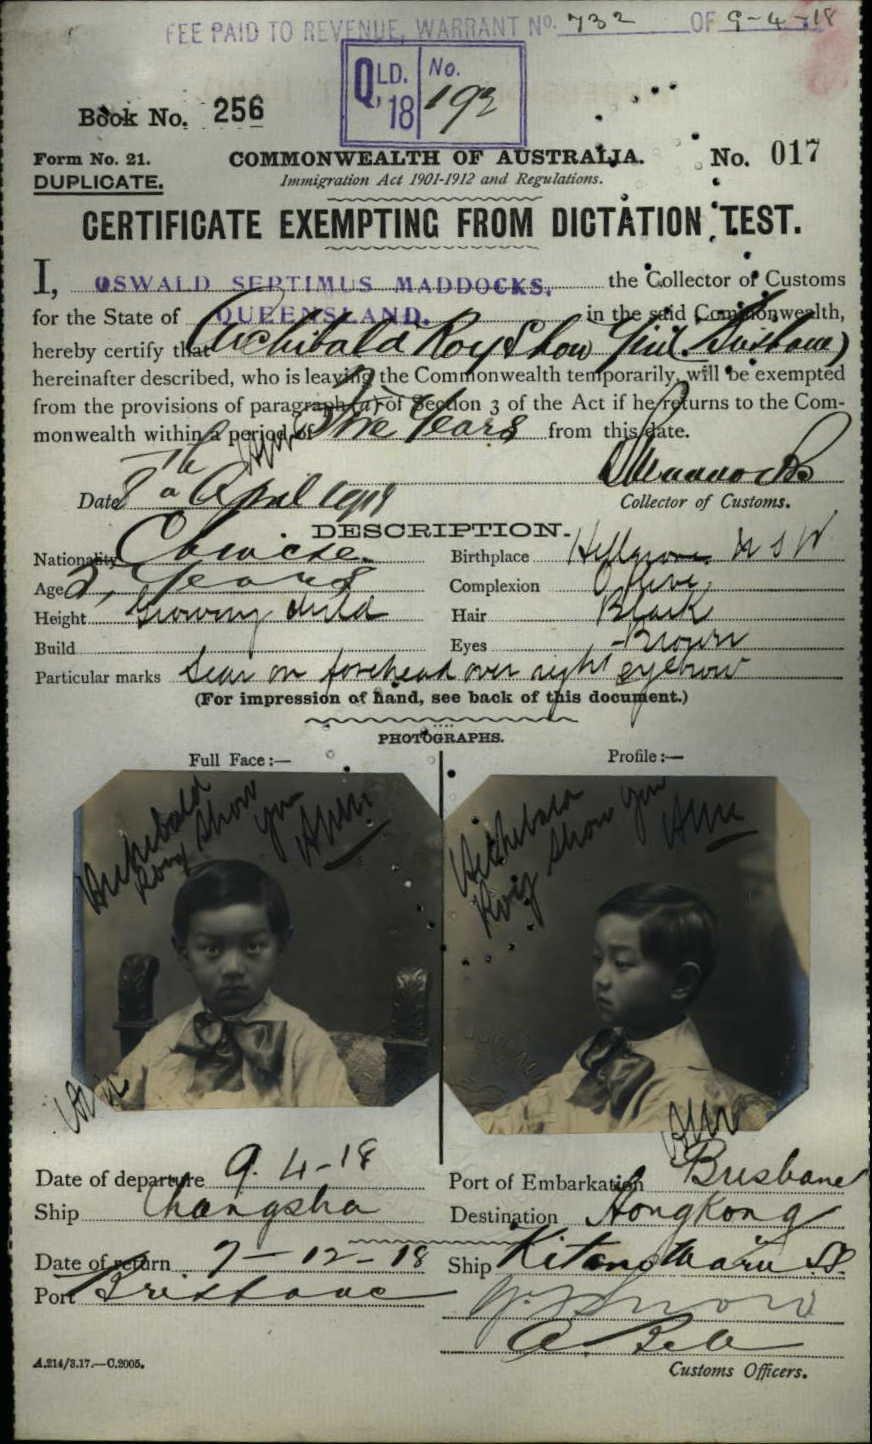 FEE PAID TO REVENUE, WARRANT No. 732 OF 9-4-18
QLD. 18 No. 192
Book No. 256
Form No. 21. COMMONWEALTH OF AUSTRALIA. No. 017
DUPLICATE. Immigration Act 1901-1912 and Regulations.
CERTIFICATE EXEMPTING FROM DICTATION TEST.
I, OSWALD SEPTIMUS MADDOCKS, the Collector of Customs
for the State of QUEENSLAND. in the said Commonwealth,
hereby certify that Archibald Roy Show Yin (Brisbane)
hereinafter described, who is leaving the Commonwealth temporarily, will be exempted
from the provisions of paragraph (a) of Section 3 of the Act if he returns to the Com-
monwealth within a period of Years from this date.
Date 8th April 1918
Collector of Customs.
DESCRIPTION.
Nationality Chinese. Birthplace Hillgrove N S W
Age Years Complexion Olive
Height Growing child Hair Black
Build Eyes Brown
Particular marks Scar on forehead over right eyebrow
(For impression of hand, see back of this document.)
PHOTOGRAPHS.
Full Face:— Profile:—
Archibald Roy Show Yin
Archibald Roy Show Yin
Date of departure 9.4-18 Port of Embarkation Brisbane
Ship Changsha Destination Hongkong
Date of return 7-12-18 Ship Kitano Maru
Port Brisbane
A.214/3.17.—C.2005. Customs Officers.